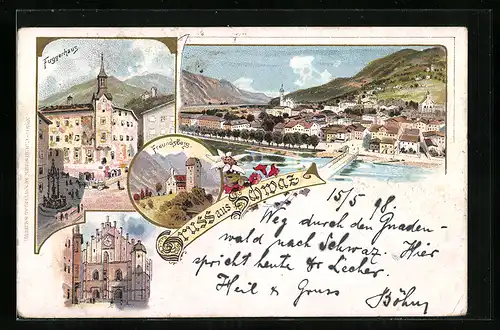 Fuggerhaus
Freundsberg.
Gruss aus Schwaz
15/5 98.
Weg durch den Gnaden-
wald nach Schwaz. Hier
spricht heute Dr Lecher.
Heil & Gruss
Böhm